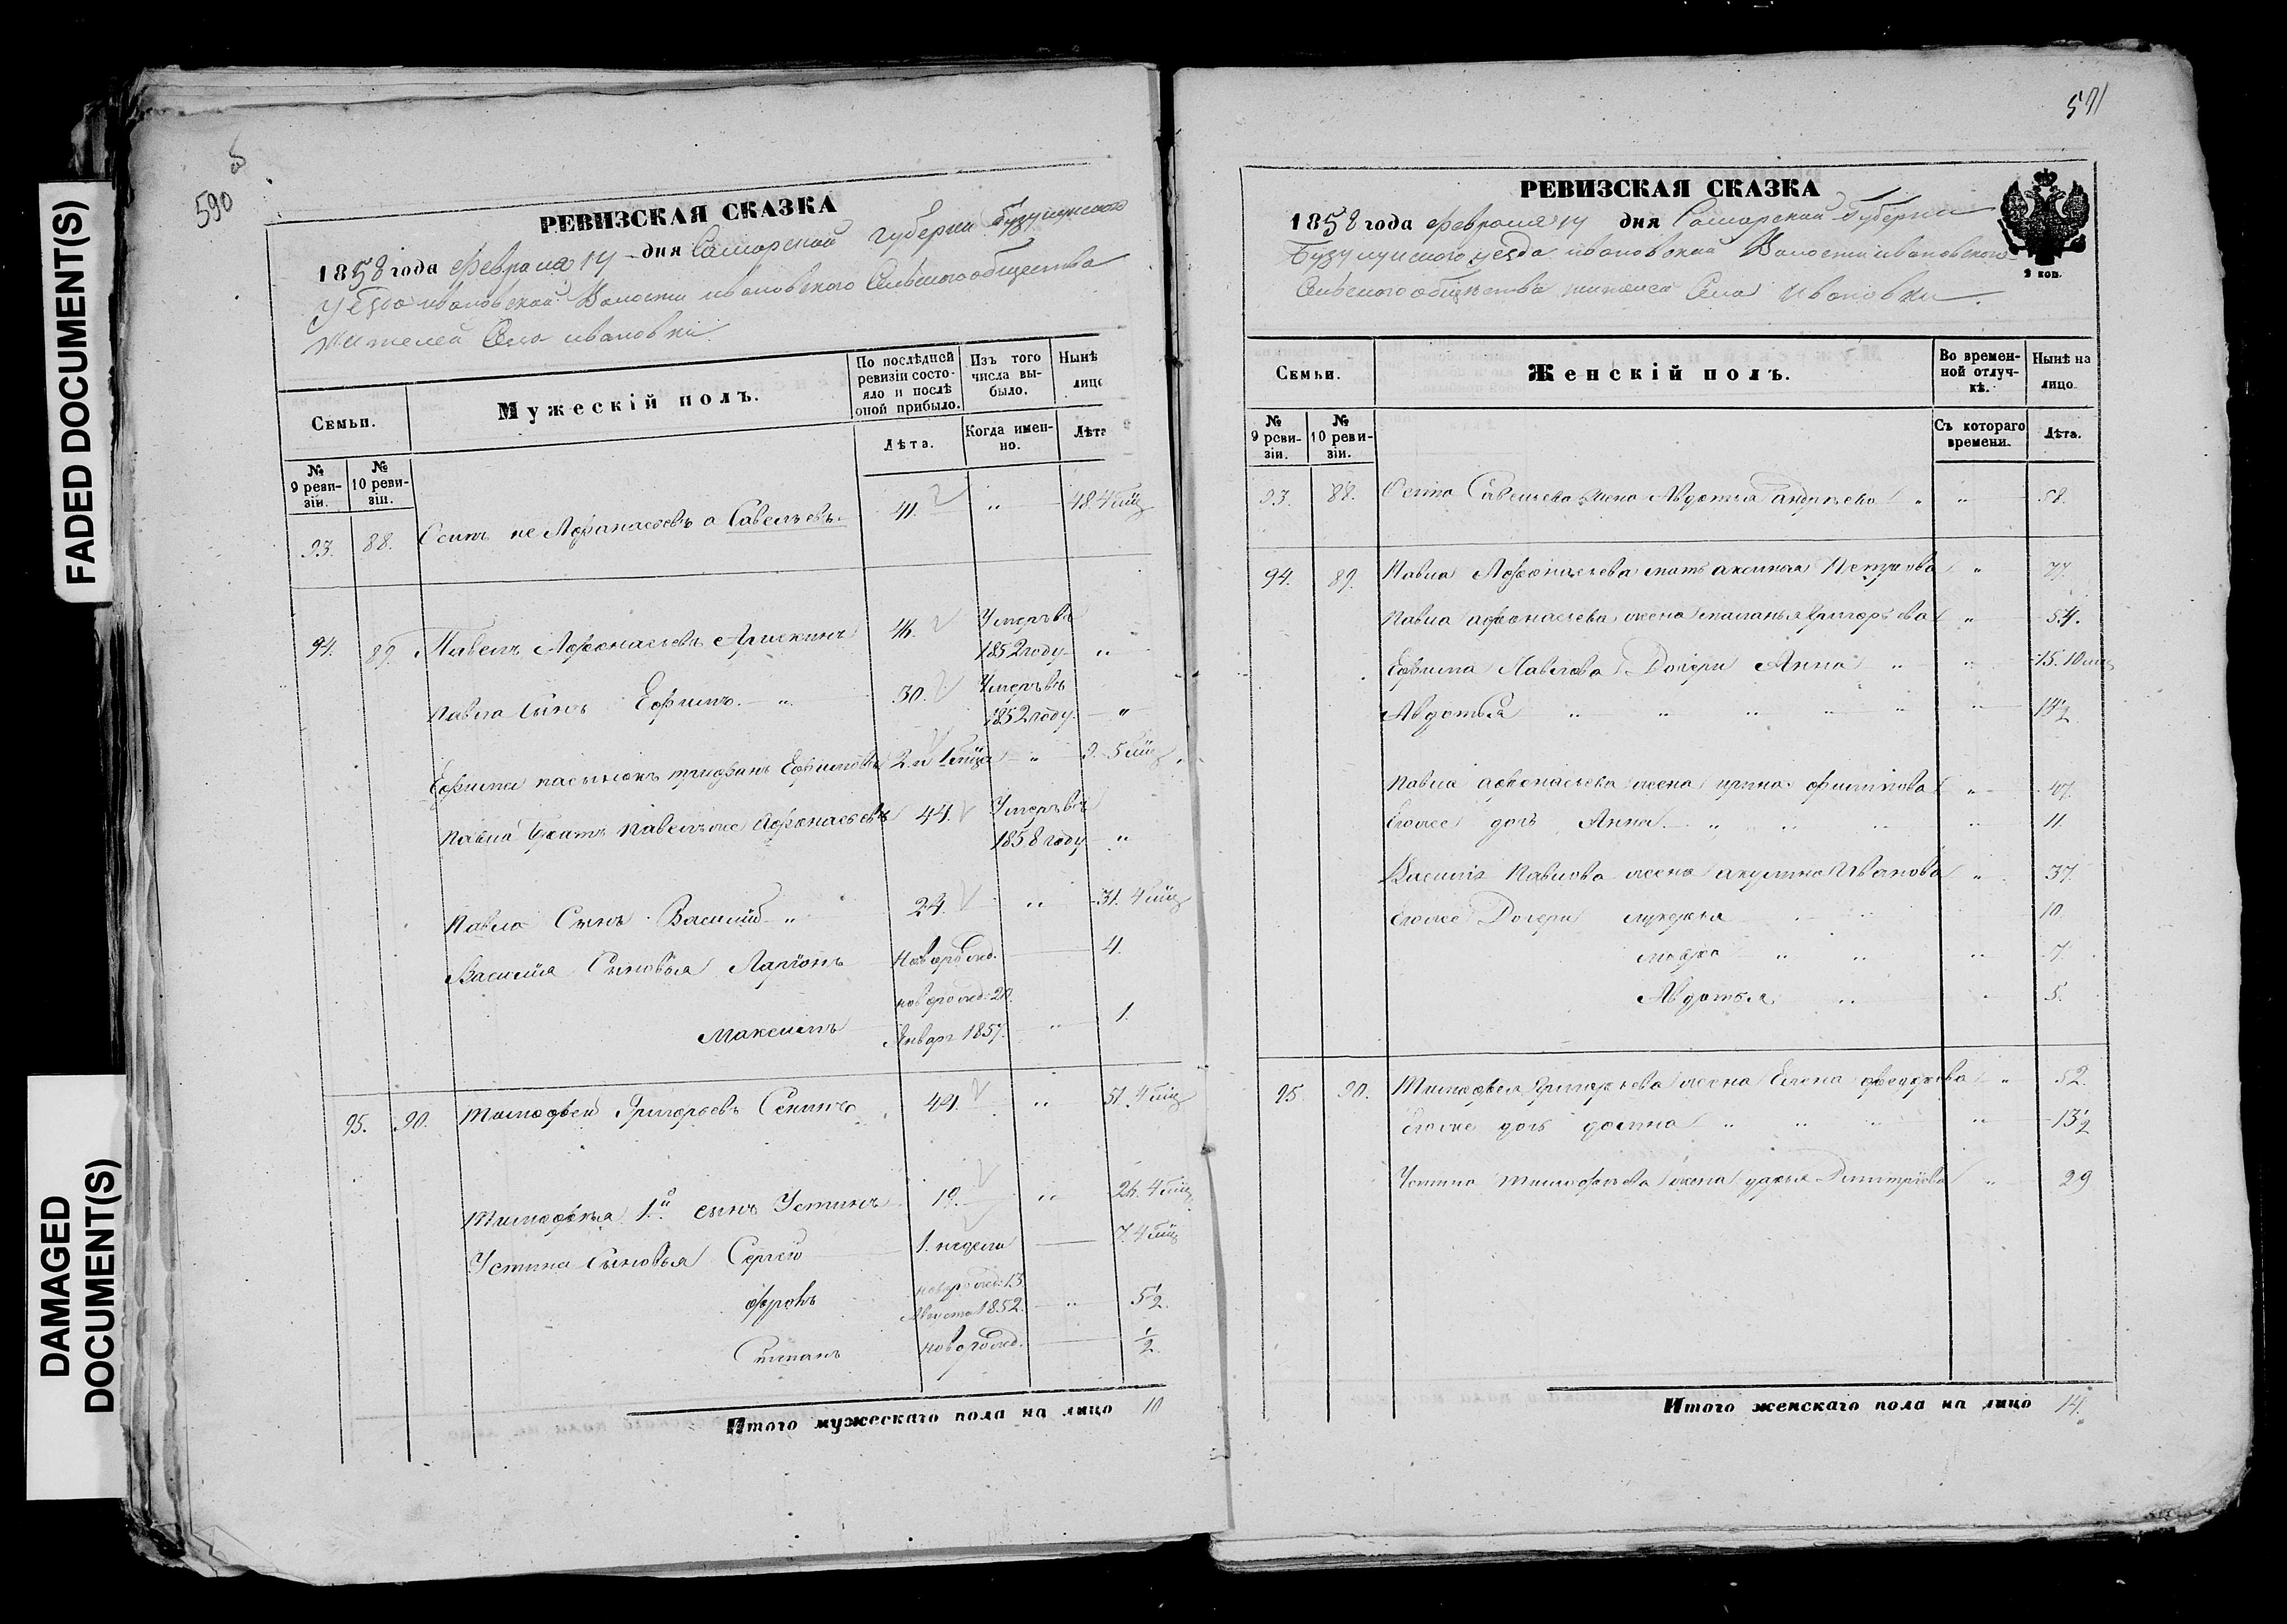 FADED DOCUMENT(S)
DAMAGED
DOCUMENT(S)
590
РЕВИЗСКАЯ СКАЗКА
1858 года февраля 14 дня Самарской губерни Бузулукского
уезда ивановской Волости ивановского Сельского общества
жителей Села ивановки
Семьи.
Мужескій полъ.
По послѣдней ревизіи состояло и послѣ оной прибыло.
Изъ того числа выбыло.
Нынѣ лицо
№ 9 ревизіи.
№ 10 ревизіи.
Лѣта.
Когда именно.
Лѣта
93. 88. Осипъ не Афанасьевъ а Савельевъ. 41. " 48. 4 мѣц
94. 89. Павелъ Афонасьевъ 46. Умеръ въ
1852 году "
Павла сынъ Ефимъ " 30. Умеръ въ
1852 году "
Ефима пасынокъ трифанъ Ефимовъ 2 и 1 мѣца " 9. 5 мѣц
Павла братъ Павелъ же Афонасьевъ 44. Умеръ въ
1858 году "
Павла Сынъ Василій " 24. " 31. 4 мѣц
Василія Сыновья Ларіонъ новорожд. 4.
новорожд: 20.
Максимъ Январ 1857. " 1.
95. 90. Тимофей Григорьевъ Сенинъ 44. " 51. 4 мѣц
Тимофея 1й сынъ Устинъ 19. " 26. 4 мѣц
Устина Сыновья Сергей 1. недели 7. 4 мѣц
новорожд: 13
фронъ Августа 1852. " 5½.
Степанъ новорожд. ½.
Итого мужескаго пола на лицо 10
РЕВИЗСКАЯ СКАЗКА
1858 года февраля 14 дня Самарской Губерни
Бузулукского уезда ивановской Волости ивановского
Сельского общества жителей Села Ивановки
2 коп.
Семьи.
Женскій полъ.
Во временной отлучкѣ.
Нынѣ на лицо.
№ 9 ревизіи.
№ 10 ревизіи.
Съ котораго времени.
Лѣта.
93. 88. Осипа Савельева жена Авдотья " " 58.
94. 89. Павла Афонасьева мать аксинья "
Павла афонасьева жена маланья Григорьева " 54.
Ефима Павлова Дочери Анна " " 15. 10 мѣц
Авдотья " " " " " " 14½
Павла афонасьева жена ирина филипова " 47.
Егоже доч Анна " " " " 11.
Василія Павлова жена акулина Иванова " 37
Егоже Дочери лукерья 10.
марфа " " " 7.
Авдотья " 5.
95. 90. Тимофея Григорьева жена Елена " 52.
Егоже доч " " " " 13½
Устина Тимофеева жена дарья Дмитріева " 29
Итого женскаго пола на лицо 14.